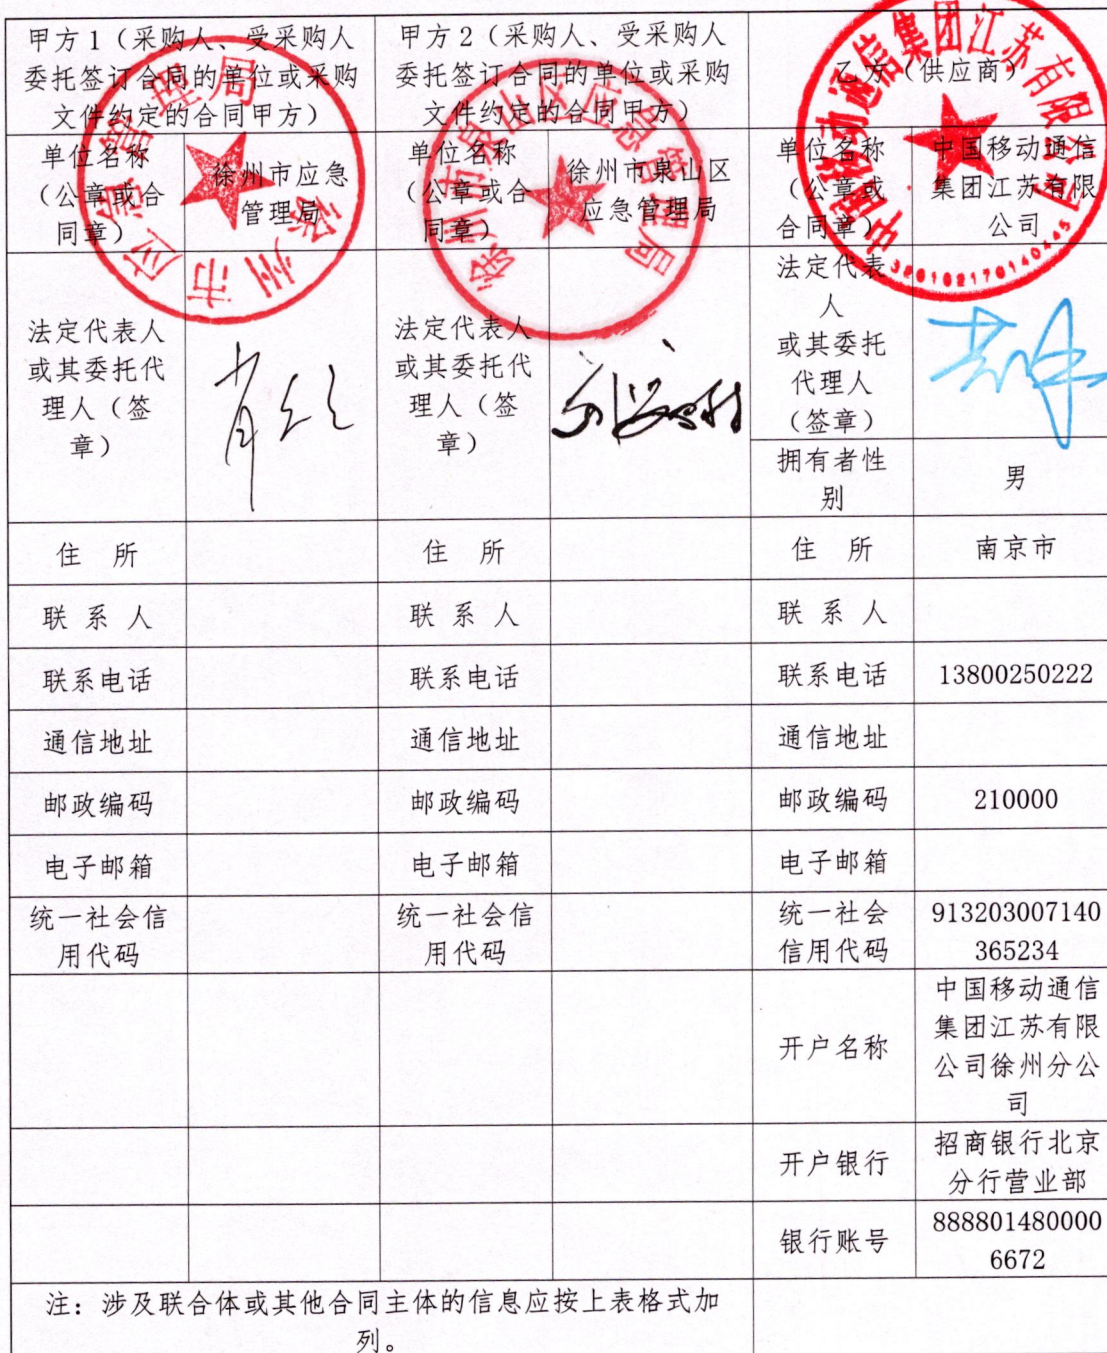 甲方1（采购人、受采购人
委托签订合同的单位或采购
文件约定的合同甲方）
甲方2（采购人、受采购人
委托签订合同的单位或采购
文件约定的合同甲方）
乙方（供应商）
单位名称
（公章或合
同章）
徐州市应急
管理局
单位名称
（公章或合
同章）
徐州市泉山区
应急管理局
单位名称
（公章或
合同章）
中国移动通信
集团江苏有限
公司
徐州市应急管理局
徐州市泉山区应急管理局
中国移动通信集团江苏有限公司
法定代表人
或其委托代
理人（签
章）
法定代表人
或其委托代
理人（签
章）
法定代表
人
或其委托
代理人
（签章）
拥有者性
别
男
住 所
住 所
住 所
南京市
联 系 人
联 系 人
联 系 人
联系电话
联系电话
联系电话
13800250222
通信地址
通信地址
通信地址
邮政编码
邮政编码
邮政编码
210000
电子邮箱
电子邮箱
电子邮箱
统一社会信
用代码
统一社会信
用代码
统一社会
信用代码
913203007140
365234
开户名称
中国移动通信
集团江苏有限
公司徐州分公
司
开户银行
招商银行北京
分行营业部
银行账号
888801480000
6672
注：涉及联合体或其他合同主体的信息应按上表格式加
列。